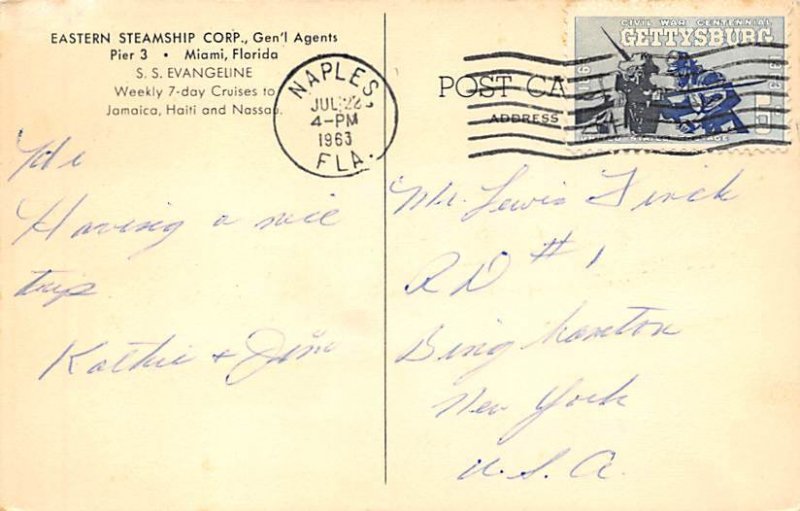 EASTERN STEAMSHIP CORP., Gen'l Agents
Pier 3 • Miami, Florida
S. S. EVANGELINE
Weekly 7-day Cruises to
Jamaica, Haiti and Nassau.
NAPLES
JUL 22
4-PM
1963
FLA.
CIVIL WAR CENTENNIAL
GETTYSBURG
POST CA
ADDRESS
Hi
Having a nice
trip
Kathie + Jim
Mr. Lewis Finch
RD #1
Binghamton
New York
U.S.A.